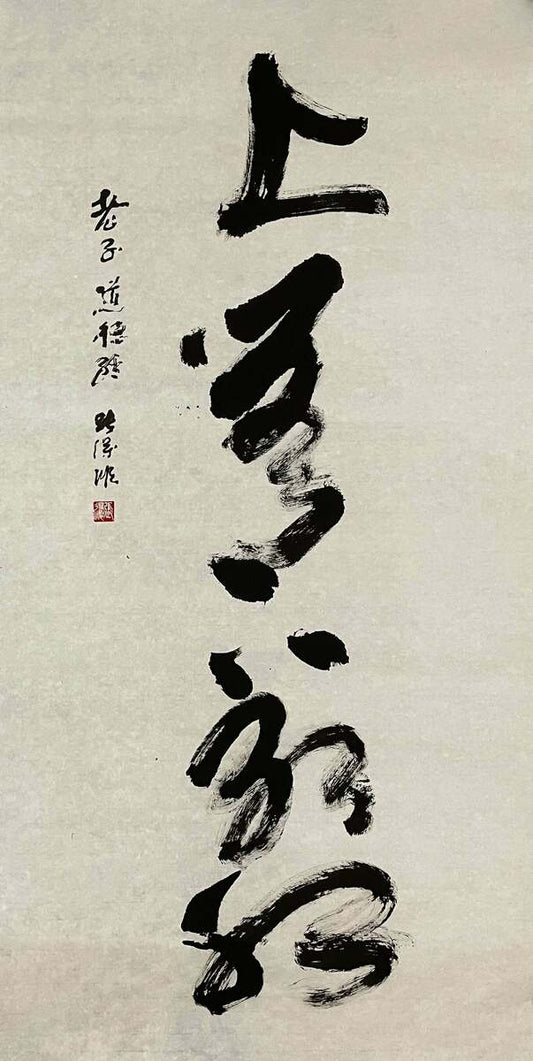 上善若水
老子道德經